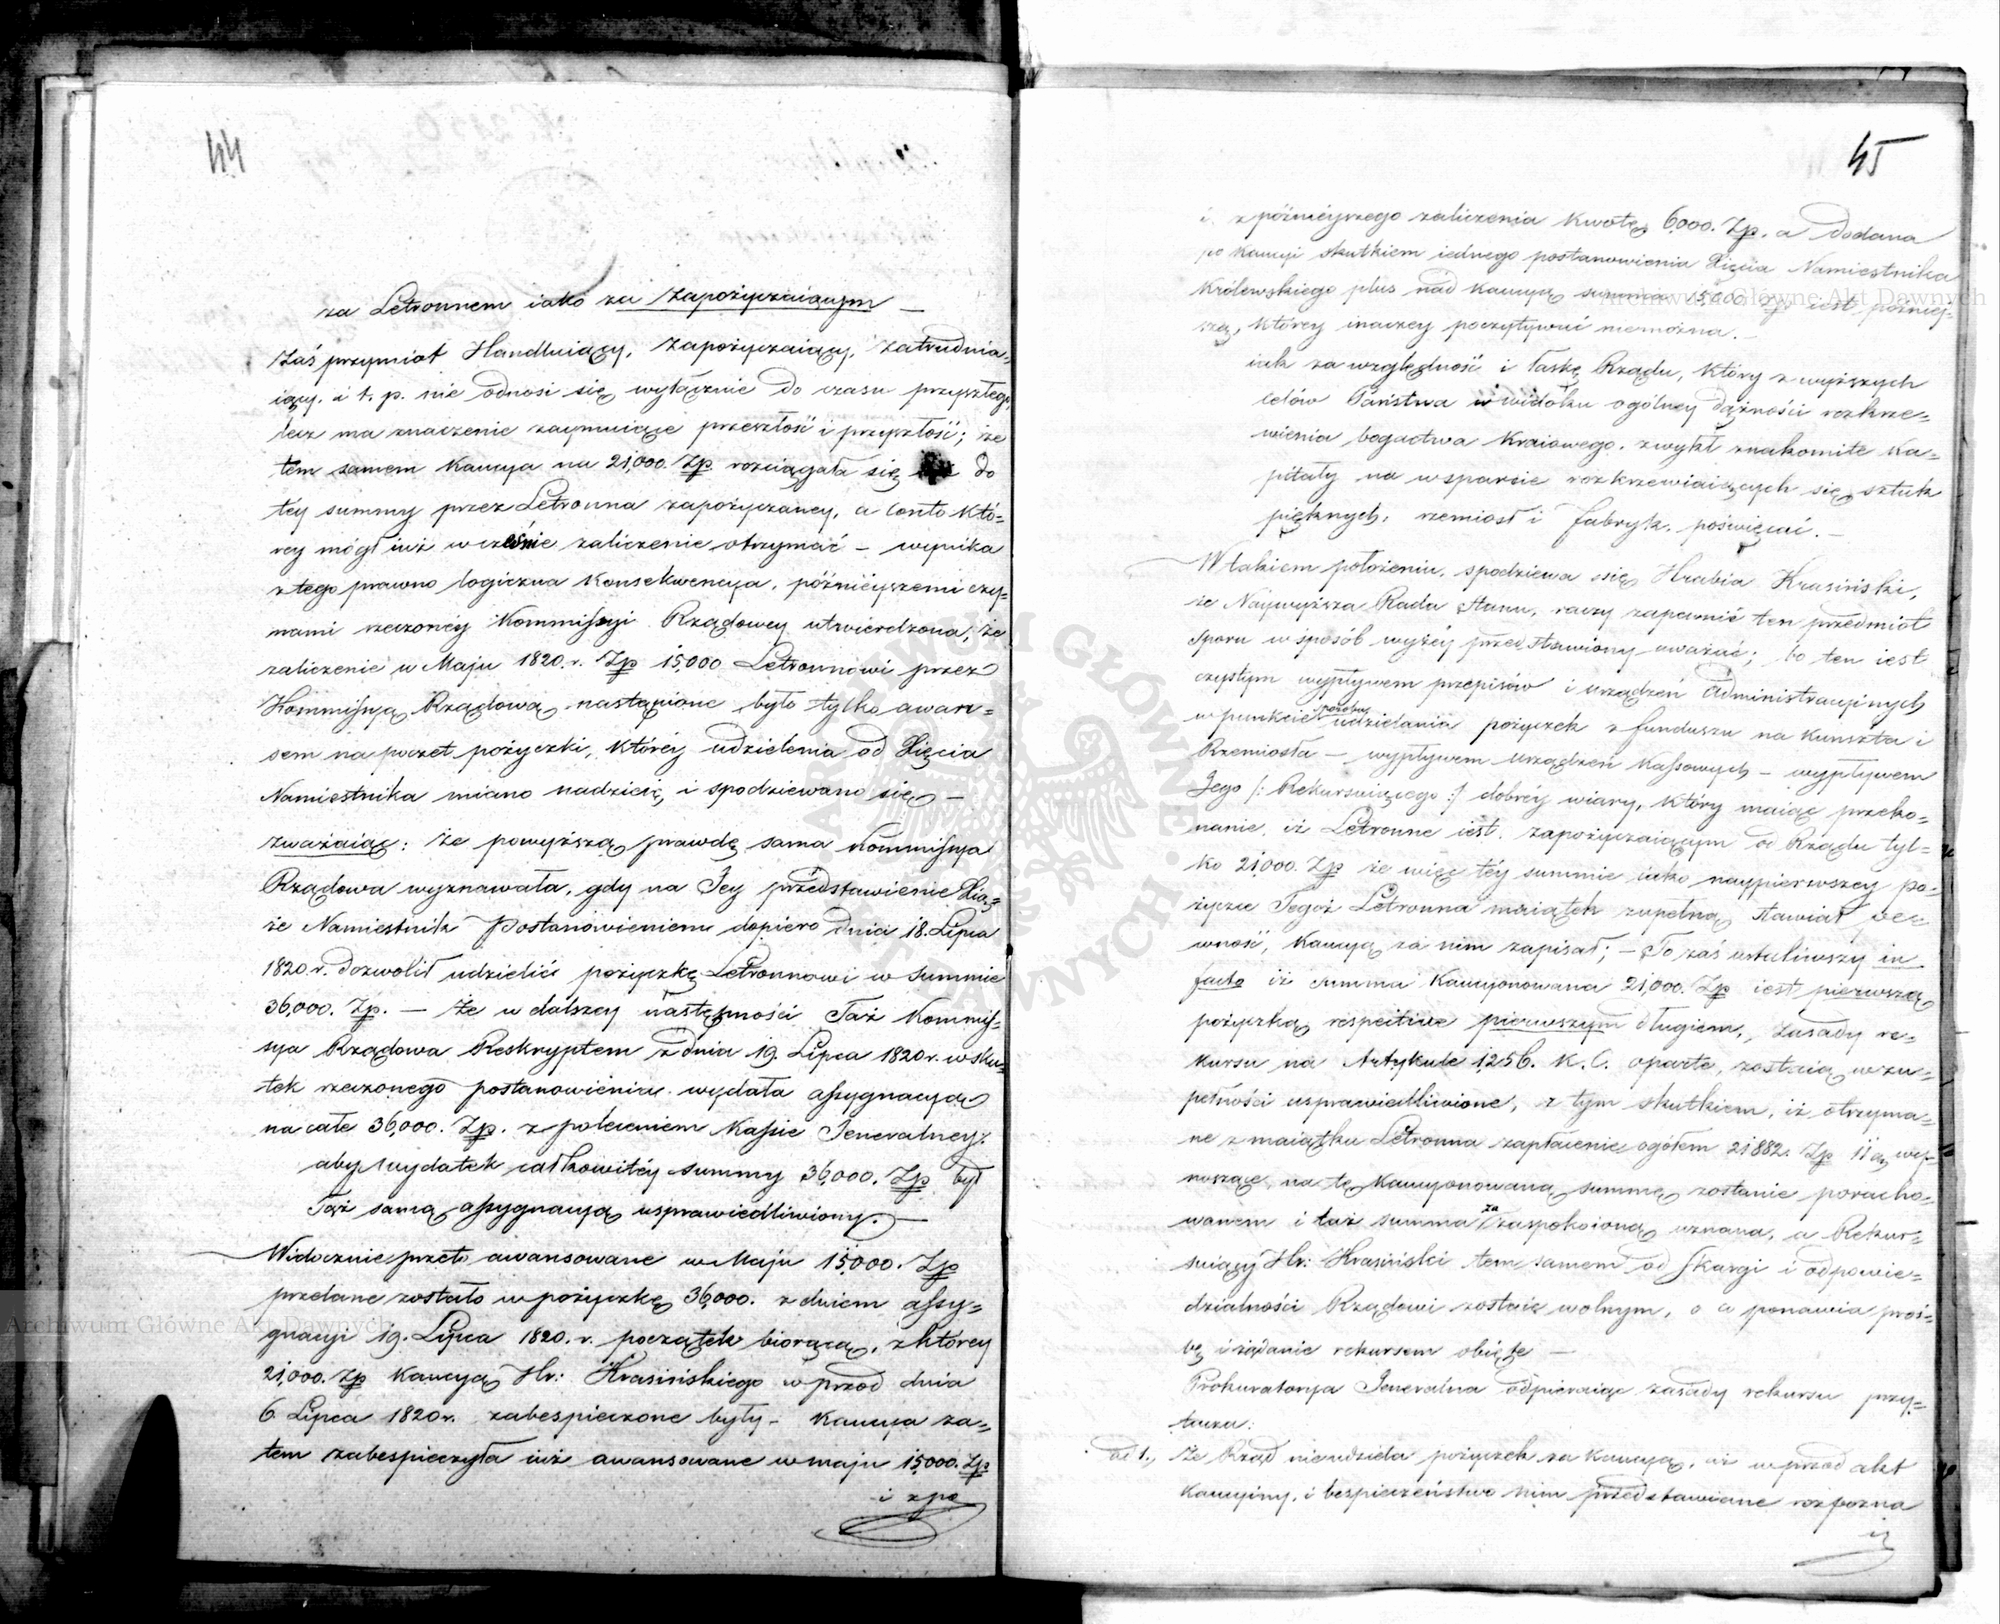 44
za Letronnem iako za zapożyczaiącym —
Zaś przymiot Handluiący, Zapożyczaiący, Zatrudnia-
iący, i t. p. nie odnosi się wyłącznie do czasu przyszłego,
lecz ma znaczenie zaymuiące przeszłość i przyszłość; że
tem samem Kaucya na 21,000. Zp rozciągała się do
tey summy przez Letronna zapożyczaney, a Conto któ-
rey mógł iuż wcześnie zaliczenie otrzymać — wynika
z tego prawno logiczna Konsekwencya, późnieyszemi czy-
nami rzeczoney Kommissyi Rządowey utwierdzona, że
zaliczenie w Maju 1820. r. Zp 15,000 Letronnowi przez
Kommissyą Rządową nastąpione było tylko awan-
sem na poczet pożyczki, któréy udzielenia od Xięcia
Namiestnika miano nadzieię, i spodziewano się —
zważaiąc: że powyższą prawdę sama Kommissya
Rządowa wyznawała, gdy na Jey przedstawienie Xią-
że Namiestnik Postanowieniem dopiero dnia 18. Lipca
1820. r. dozwolił udzielić pożyczkę Letronnowi w summie
36,000. Zp. — Że w dalszey następności Taż Kommis-
sya Rządowa Reskryptem z dnia 19. Lipca 1820 r. w sku-
tek rzeczonego postanowienia wydała assygnacyą
na całe 36,000. Zp. z poleceniem Kassie Jeneralney:
aby wydatek całkowitéy summy 36,000. Zp był
Tąż samą assygnacyą usprawiedliwiony. —
Widocznie przeto awansowane w Maju 15,000. Zp
przelane zostało w pożyczkę 36,000. z dniem assy-
gnacyi 19. Lipca 1820. r. początek biorącą, z którey
21,000. Zp Kaucyą Hr: Krasińskiego wprzód dnia
6 Lipca 1820 r. zabespieczone były — Kaucya za-
tem zabespieczyła iuż awansowane w maju 15,000. Zp
i z po
45
i z późnieyszego zaliczenia Kwotę 6,000. Zp. a dodana
po Kaucyi skutkiem iednego postanowienia Xięcia Namiestnika
Królewskiego plus nad Kaucyą summa 15,000 Zp iest późniey-
szą, którey inaczey poczytywać niemożna. —
iak za względność i łaskę Rządu, który z wyższych
celów Państwa w widoku ogólney dążności rozkrze-
wienia bogactwa Kraiowego, zwykł znakomite Ka-
pitały na wsparcie rozkrzewiaiących się sztuk
pięknych, rzemiosł i fabryk, poświęcać. —
W takiem położeniu, spodziewa się Hrabia Krasiński,
że Naywyższa Rada Stanu, raczy zapewnić ten przedmiot
sporu w sposób wyżéy przedstawiony uważać; bo ten iest
czystym wypływem przepisów i urządzeń Administracyinych
w punkcie sposobu udzielania pożyczek z funduszu na Kunszta i
Rzemiosła — wypływem urządzeń Kassowych — wypływem
Jego /: Rekursuiącego :/ dobréy wiary, który maiąc przeko-
nanie, iż Letronne iest zapożyczaiącym od Rządu tyl-
ko 21,000. Zp że więc téy summie iako naypierwszey po-
życzce Tegoż Letronna maiątek zupełną stawiał pe-
wność, Kaucyą za nim zapisał; — To zaś ustaliwszy in
facto iż summa Kaucyonowana 21,000. Zp iest pierwszą
pożyczką respective pierwszym długiem, zasady re-
kursu na Artykule 1256. K. C. oparte, zostaią w zu-
pełności usprawiedliwione, z tym skutkiem, iż otrzyma-
ne z maiątku Letronna zapłacenie ogółem 21882. Zp 11 gr wy-
noszące, na tę Kaucyonowaną summę zostanie poracho-
wanem i taż summa za zaspokoioną uznana, a Rekur-
suiący Hr: Krasiński tem samem od skargi i odpowie-
dzialności Rządowi zostaie wolnym, o co ponawia proś-
bę i żądanie rekursem obięte —
Prokuratorya Jeneralna odpieraiąc zasady rekursu przy-
tacza:
ad 1., Że Rząd nieudziela pożyczek za Kaucyą, aż wprzód akt
Kaucyiny, i bezpieczeństwo nim przedstawione rozpozna
iż